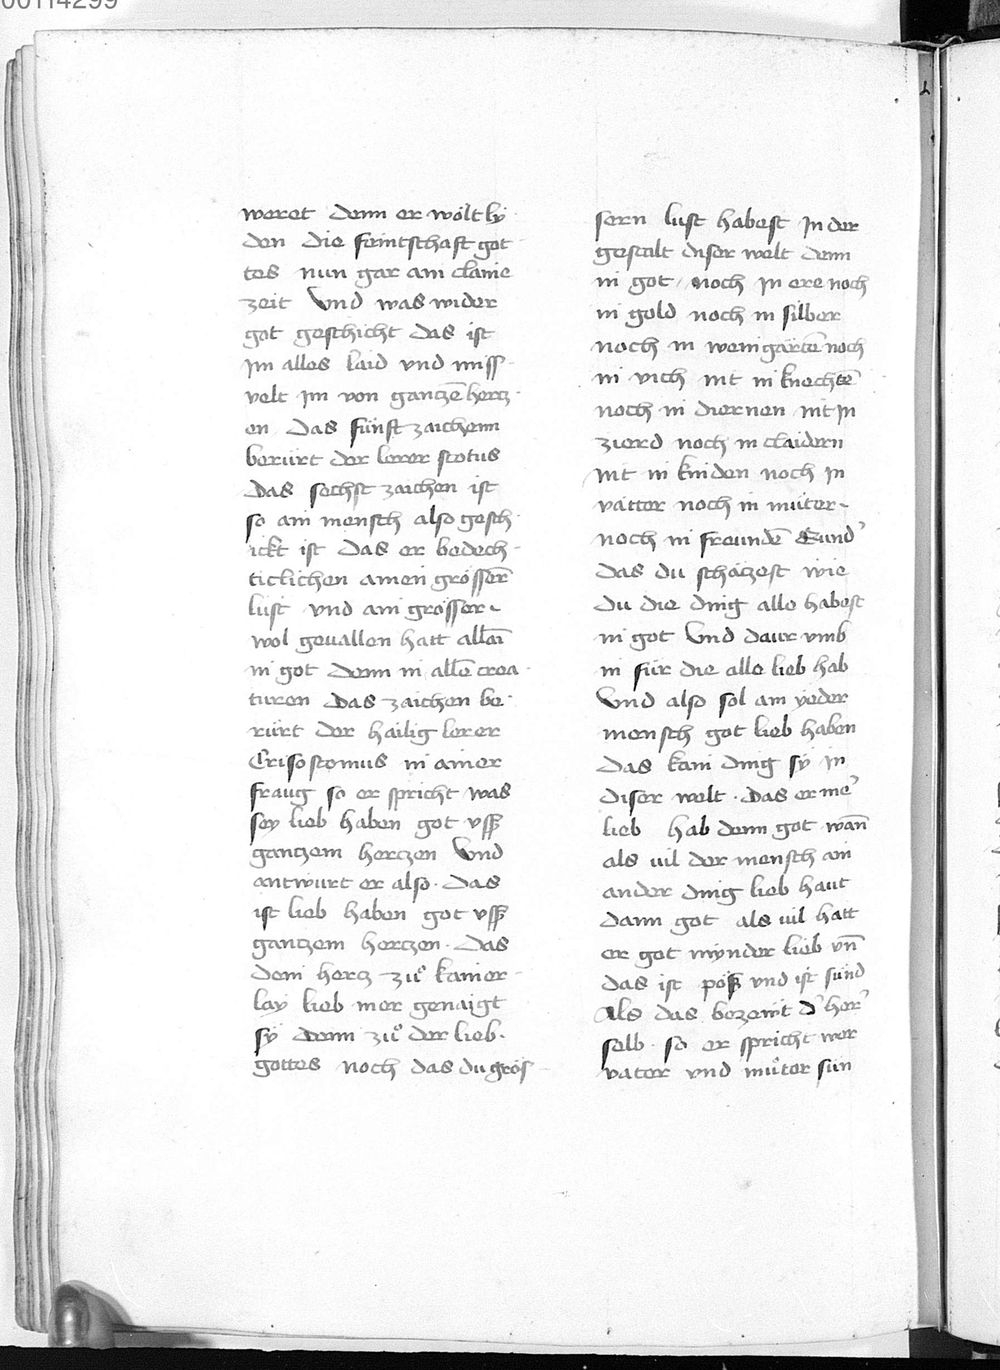 00114299
weret denn er wölt ly
den die feintschaft got
tes nun gar ain claine
zeit Vnd was wider
got geschicht das ist
jm alles laid vnd miss
velt jm von gantzē hertz
en Das fünft zaichenn
berürt der lerer scotus
Das sechst zaichen ist
so ain mensch also gesch
ickt ist das er bedech
ticlichen ainen grösserē
lust vnd ain grösser
wol geuallen hatt allai
in got denn in allē crea
turen Das zaichen be
rürt der hailig lerer
Crisostomus in ainer
fraug so er spricht was
sey lieb haben got vss
gantzem hertzen Vnd
antwurt er also. Das
ist lieb haben got vss
gantzem hertzen. Das
dein hertz zuͦ kainer
lay lieb mer genaigt
sÿ denn zuͦ der lieb
gottes noch das du grös
sern lust habest jn der
gestalt diser welt denn
in got noch jn ere noch
in gold noch in silber
noch in weingärtē noch
in vich nit in knechtē
noch in diernen nit jn
zierd noch in claidern
nit in kinden noch jn
vätter noch in muter
noch in freundē Sund'
das du schätzest wie
du die ding alle habest
in got Vnd daur vmb
in für die alle lieb hab
Vnd also sol ain yeder
mensch got lieb haben
Das kain ding sÿ in
diser welt. Das er me'
lieb hab denn got wān
als vil der mensch ain
ander ding lieb haut
dann got als vil hatt
er got mynder lieb vn̄
das ist pöß vnd ist sünd
Als das bezewt d' her'
selb. so er spricht wer
vater vnd muͦter sün